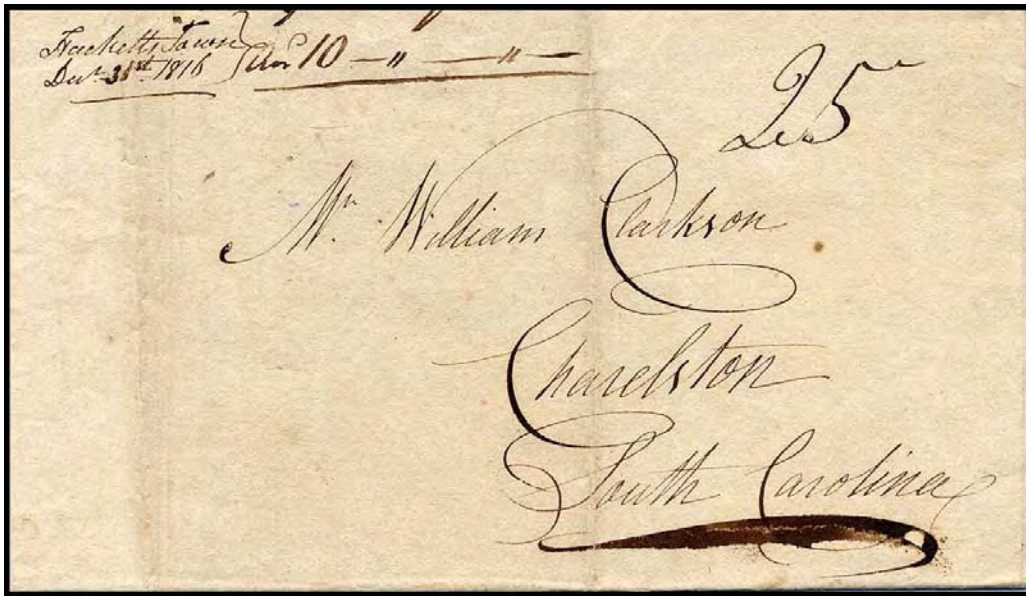 Hacketts Town
Decr 31st 1816
10 — " — " —
25
Mr. William Clarkson
Charelston
South Carolina